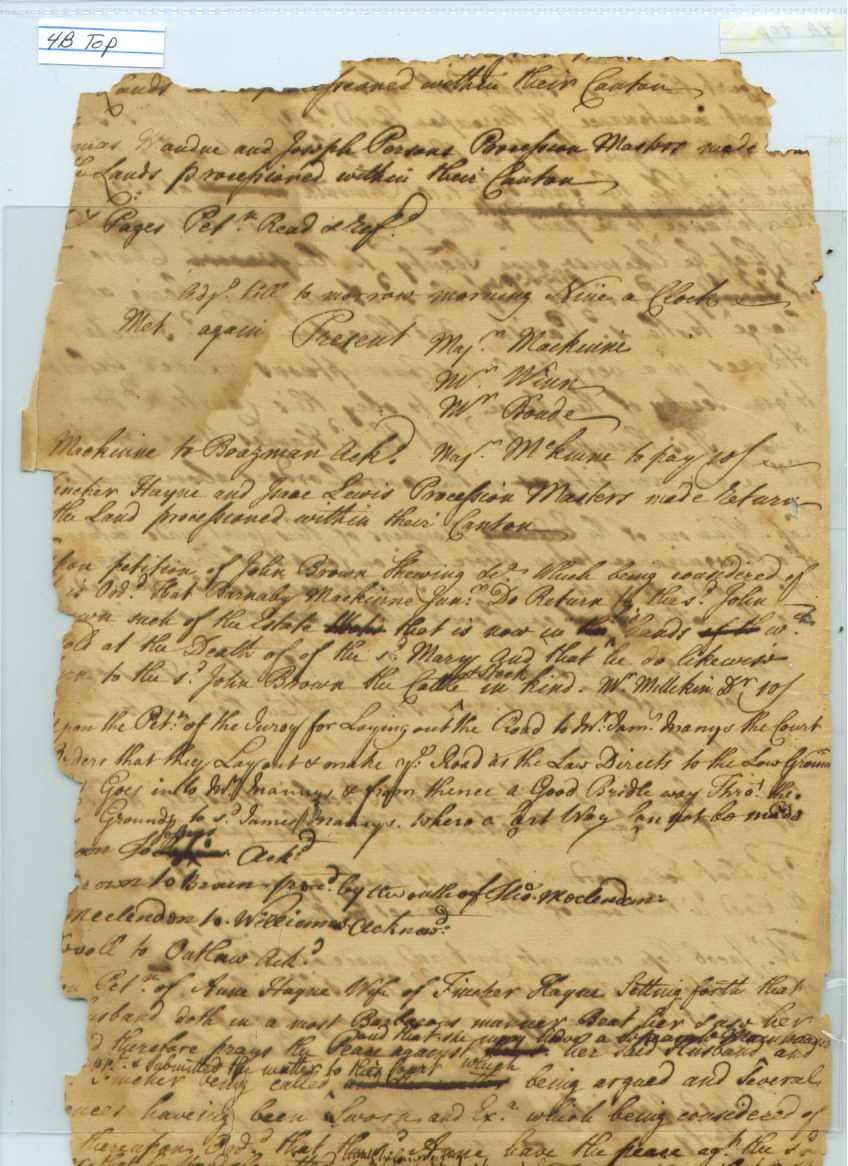 4B Top
Lands processioned within their Canton
Vandue and Joseph Persons Procession Masters made
Lands processioned within their Canton
Pages Petn. Read & rejd.
Adjd. till to morrow morning Nine a Clock
Met again Present Majr. Mackinne
Mr. Winn
Mr. Doude
Mackinne to Boazman Ackd. Majr. McKinne to pay 10/
Fincher Hayne and Isaac Lewis Procession Masters made Return
the Land processioned within their Canton
petition of John Brown Shewing &c. Which being considered of
is Ord. that Barnaby Mackinne Junr. Do Return to the sd. John
such of the Estate that is now in his hands wc.
at the Death of of the sd. Mary and that he do likewise
to the sd. John Brown the Cattle & Stock in kind. Mr. Millikin Dr. 10/
upon the Petn. of the Jurey for Laying out the Road to Mr. Jams. Manys the Court
Orders that they Layout & make ye. Road as the Law Directs to the Low Grounds
Goes in to Mr. Mannys & from thence a Good Bridle way Thro' the
Grounds to sd. James Mannys. Where a Cart Way Can not be made
to Ackd.
to Brown provd. by the oath of Tho. Mcclendon
Mcclendon to Williams Acknowd.
to Outlaw Ackd.
Petn. of Anne Hayne Wife of Fincher Hayne Setting forth that
husband doth in a most Barbarous manner Beat her & use her
and that she may have a
therefore prays the Peace against her said Husband and
& Submitted the matter to this Court which
Fincher being called being argued and Several
haveing been Sworn and Exn. which being considered of
thereupon Ord. that the sd. Anne have the peace agt. the sd.